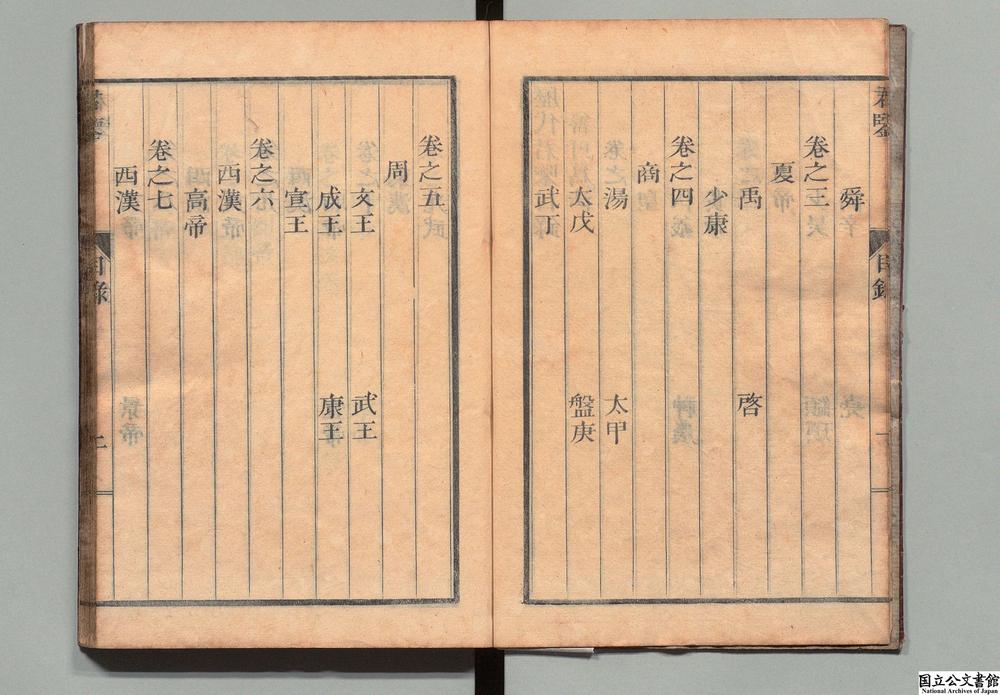 舜
卷之三
夏
禹 啓
少康
卷之四
商
湯 太甲
太戊 盤庚
武丁
君鑒
目錄
一
卷之五
周
文王 武王
成王 康王
宣王
卷之六
西漢
高帝
卷之七
西漢
目錄
二
国立公文書館
National Archives of Japan